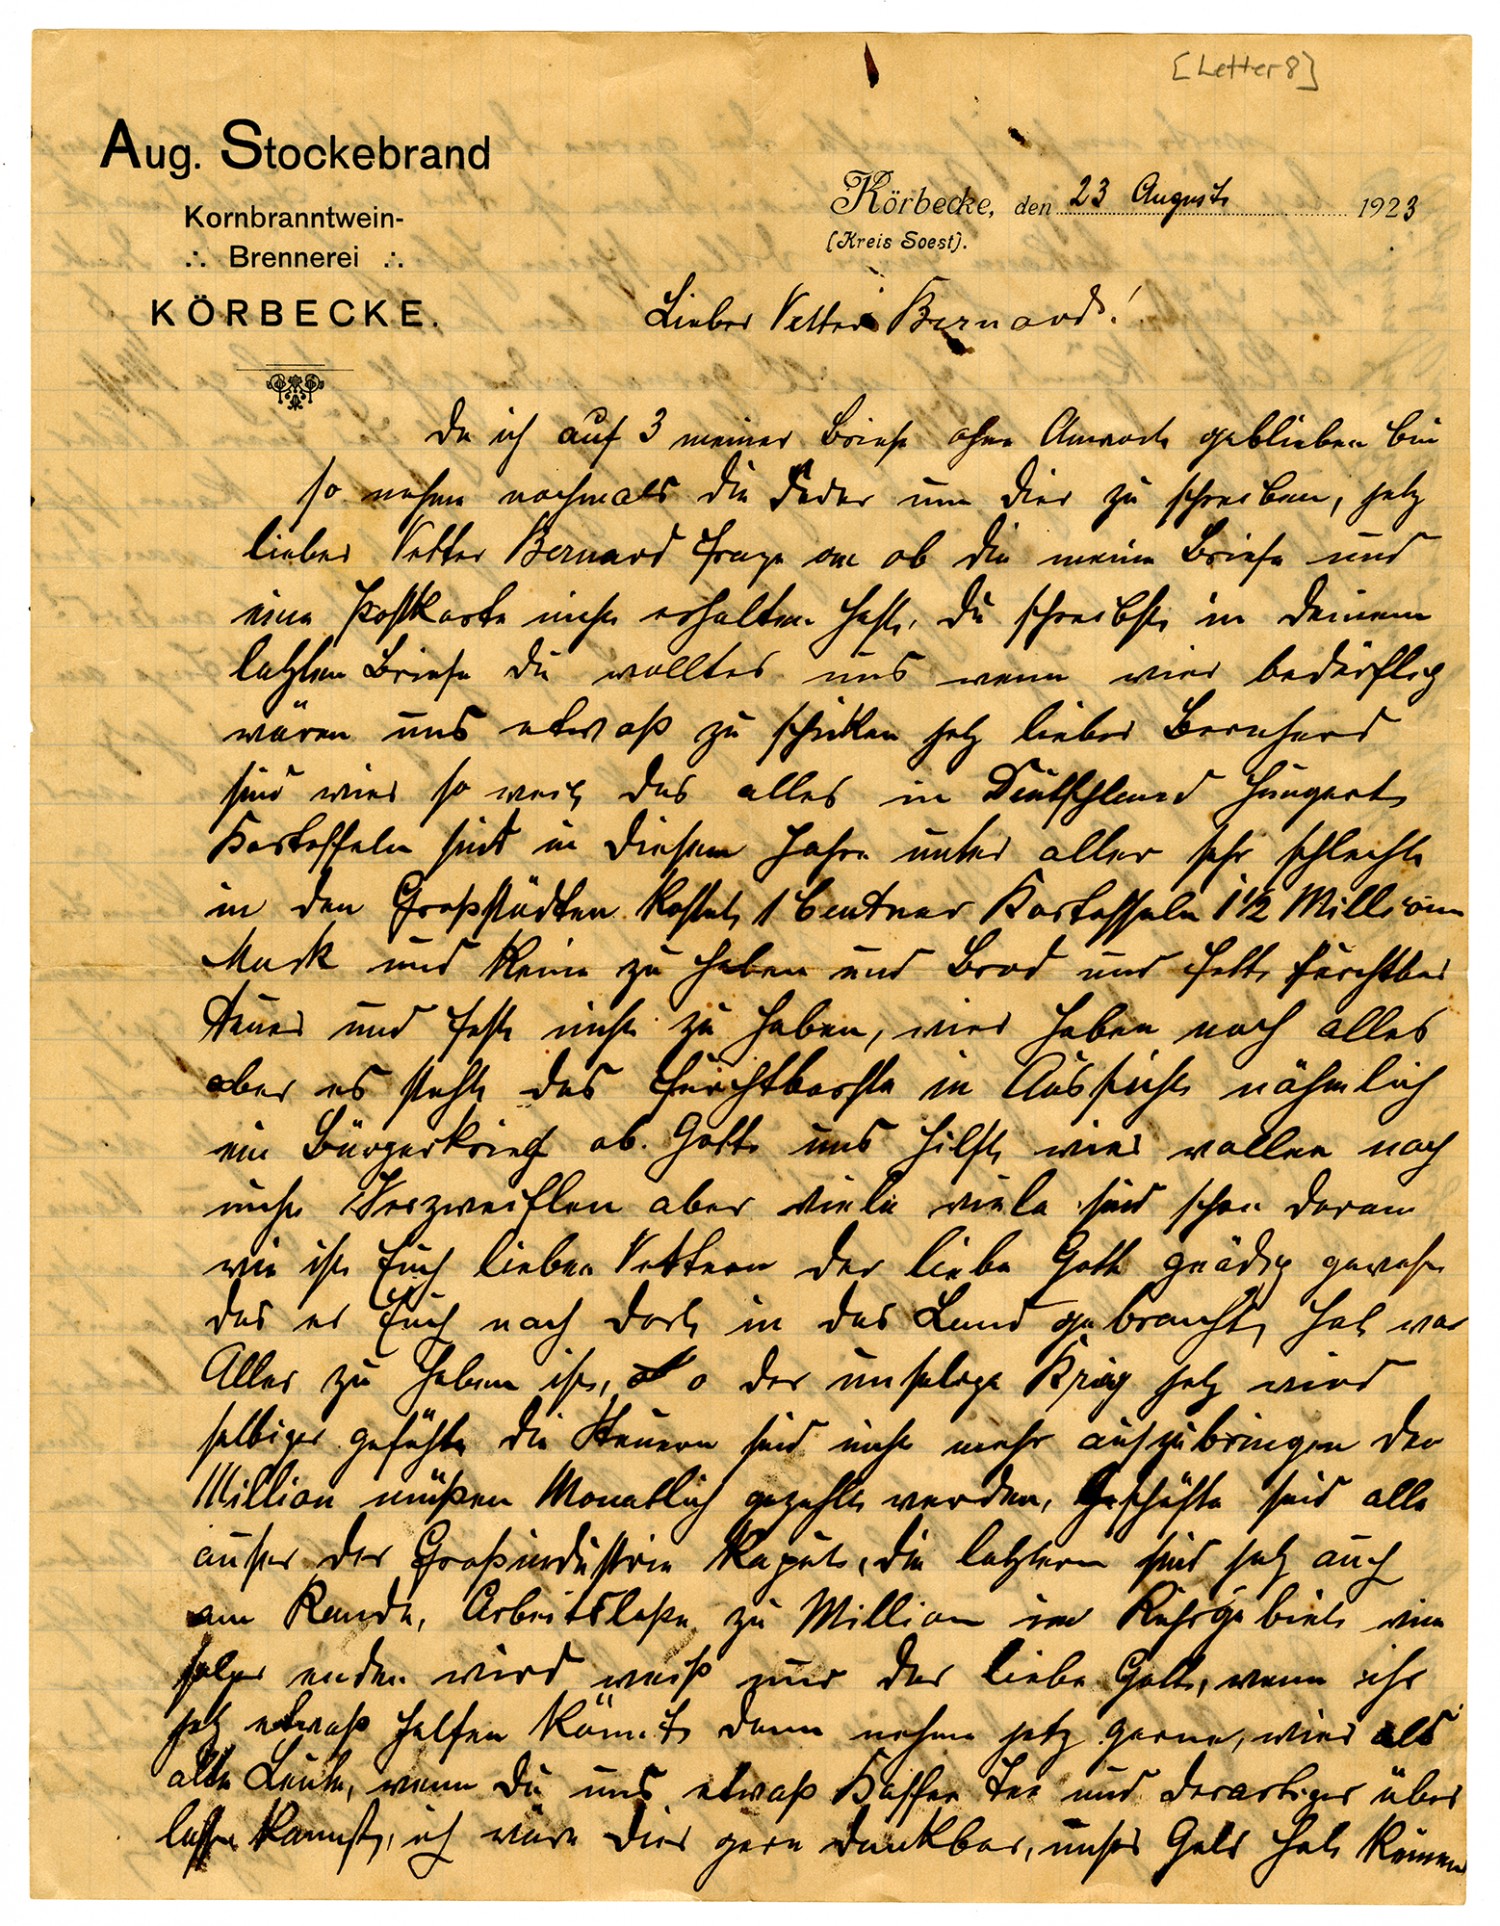 [Letter 8]
Aug. Stockebrand
Kornbranntwein-
∴ Brennerei ∴
KÖRBECKE.
Körbecke, den 23 Augusts 1923
(Kreis Soest).
Lieber Vetter Bernard!
Da ich auf 3 meiner Briefe ohne Anwort geblieben bin
so nehme nochmals die Feder um Dier zu schreiben, jetz
lieber Vetter Bernard frage an ob du meine Briefe und
eine Postkarte nicht erhalten hast, du schreibst in deinem
letzten Briefe du wolltes uns wenn wier bedürftig
wären uns etwaß zu schicken jetz lieber Bernhard
sind wier so weit das alles in Deutschland hungert
Kartoffeln sind in diesem Jahre unter aller sehr schlecht
in den Großstädten kostet 1 Centner Kartoffeln 1 1/2 Millionen
Mark und keine zu haben und Brod und Fett furchtbar
teuer und fast nicht zu haben, wier haben noch alles
aber es steht das furchtbarste in Aussicht nähmlich
ein Bürgerkrieg ob Gott uns hilft wier wollen noch
nicht Verzweiflen aber viele viele sind schon daran
wie ist Euch lieben Vettern der liebe Gott gnädig gewesen
das er Euch nach dort in das Land gebracht hat wo
Alles zu haben ist, o der unselige Krieg jetz wird
selbiger gefühlt die Steuern sind nicht mehr aufzubringen den
Million müßen Monatlich gezahlt werden, Geschäfte sind alle
außer der Großindustrie kaput, die letztern sind jetz auch
am Rande, Arbeitslose zu Million im Ruhrgebiet wie
solges enden wird weiß nur der liebe Gott, wenn ihr
jetz etwaß helfen könnt dann nehme jetz gerne, wier als
alte Leute, wenn du uns etwaß Kaffee Tee und derartiges über
lassen kannst, ich wäre Dier gern dankbar, unser Geld hat keinen